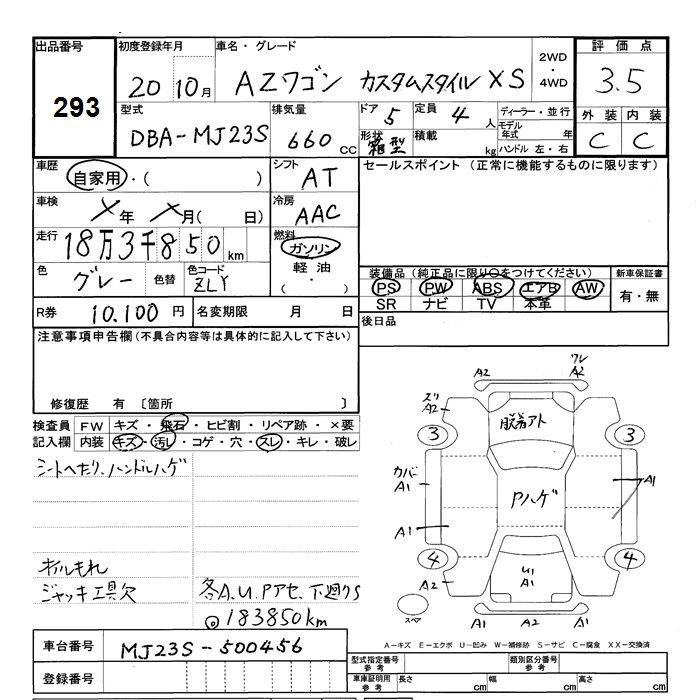 出品番号 初度登録年月 車名・グレード 2WD・4WD 評価点
293 20 10月 AZワゴン カスタムスタイル XS 3.5
型式 排気量 ドア 5 定員 4人 ディーラー・並行 外装 内装
DBA-MJ23S 660 CC 形状 箱型 積載 kg モデル年式 年 C C
ハンドル 左・右
車歴 自家用・( ) シフト AT セールスポイント(正常に機能するものに限ります)
車検 ×年 ×月( 日) 冷房 AAC
走行 18万3千850km 燃料 ガソリン
軽油
( ・ )
色 グレー 色替 色コード ZLY
装備品(純正品に限り○をつけてください) 新車保証書
PS PW ABS エアB AW 有・無
SR ナビ TV 本革
R券 10.100円 名変期限 月 日 後日品
注意事項申告欄(不具合内容等は具体的に記入して下さい)
修復歴 有 〔箇所 〕
検査員 FW キズ・飛石・ヒビ割・リペア跡・×要
記入欄 内装 キズ・汚レ・コゲ・穴・スレ・キレ・破レ
シートへたり、ハンドルハゲ
オイルもれ
ジャッキ工具欠 各A.U.Pアセ、下廻りS
@183850km
車台番号 MJ23S-500456
登録番号
A2 ワレ A2
スリ A2
3 脱着アト 3
カバー A1 Pハゲ A1
A1
4 U1 A1 4
A2
スペア A2 A1 A2
A－キズ E－エクボ U－凹み W－補修跡 S－サビ C－腐食 XX－交換済
型式指定番号 参考 類別区分番号 参考
車庫証明用 参考 長さ cm 幅 cm 高さ cm